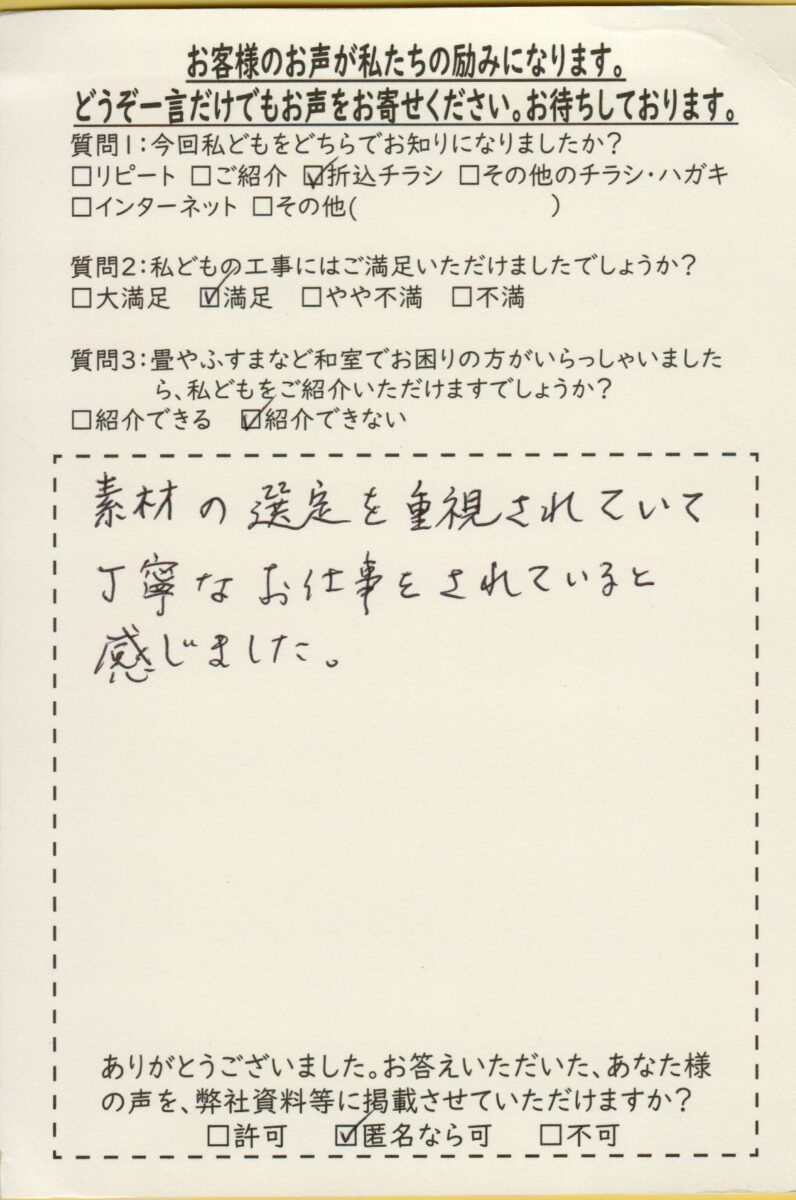 お客様のお声が私たちの励みになります。
どうぞ一言だけでもお声をお寄せください。お待ちしております。
質問1:今回私どもをどちらでお知りになりましたか?
□リピート □ご紹介 ☑折込チラシ □その他のチラシ・ハガキ
□インターネット □その他( )
質問2:私どもの工事にはご満足いただけましたでしょうか?
□大満足 ☑満足 □やや不満 □不満
質問3:畳やふすまなど和室でお困りの方がいらっしゃいました
ら、私どもをご紹介いただけますでしょうか?
□紹介できる ☑紹介できない
素材の選定を重視されていて
丁寧なお仕事をされていると
感じました。
ありがとうございました。お答えいただいた、あなた様
の声を、弊社資料等に掲載させていただけますか?
□許可 ☑匿名なら可 □不可